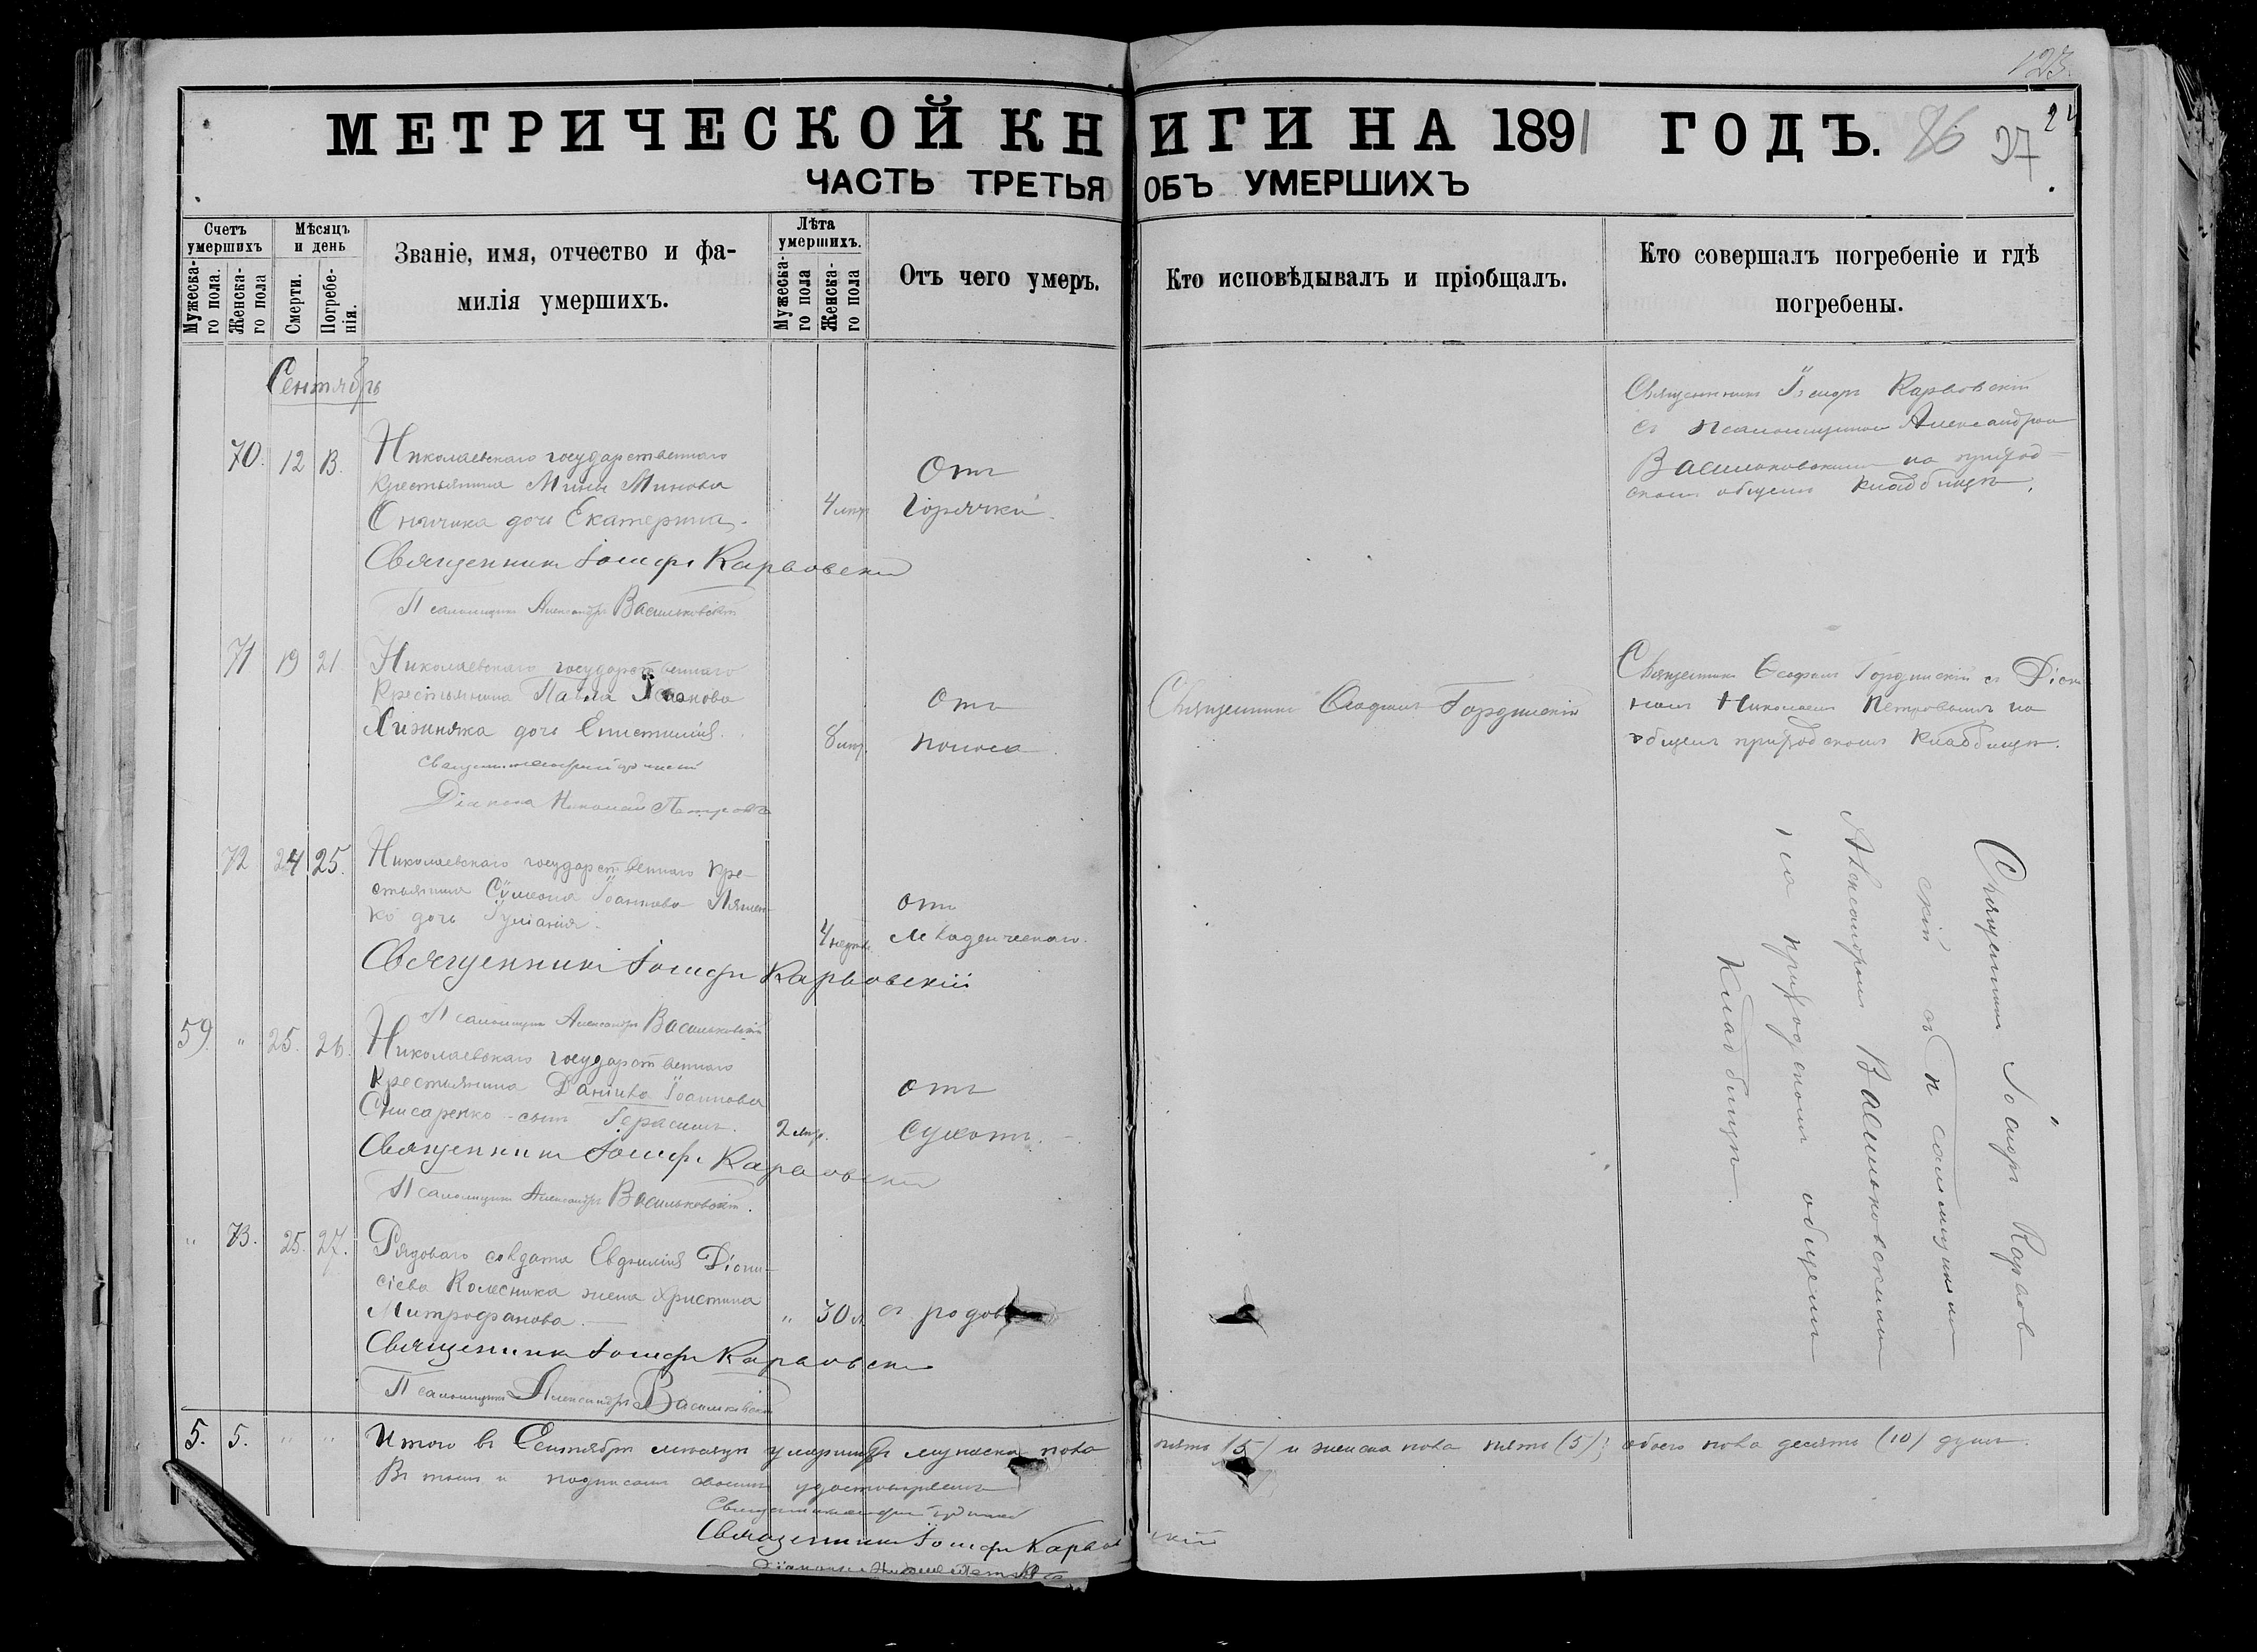 123.
МЕТРИЧЕСКОЙ КНИГИ НА 1891 ГОДЪ.
86 27
ЧАСТЬ ТРЕТЬЯ ОБЪ УМЕРШИХЪ
Счетъ умершихъ
Мужеска-го пола.
Женска-го пола
Мѣсяцъ и день
Смерти.
Погребе-нія.
Званіе, имя, отчество и фа-
милія умершихъ.
Лѣта умершихъ.
Мужеска-го пола
Женска-го пола
Отъ чего умеръ.
Кто исповѣдывалъ и пріобщалъ.
Кто совершалъ погребеніе и гдѣ
погребены.
Сентябрь
70. 12 13. Николаевскаго государственнаго
крестьянина Мины Минова
дочь Екатерина.
4 мѣс. Отъ
горячки.
Священникъ Іосифъ Карвовскій
съ псаломщикомъ Александромъ
Васильковскимъ на приход-
скомъ общемъ кладбищѣ.
Священникъ Іосифъ Карвовскій
Псаломщикъ Александръ Васильковскій
71 19 21. Николаевскаго государственнаго
крестьянина Павла Іоанова
дочь Епистимія.
8 Отъ
поноса
Священникъ Ѳеофилъ
Священникъ Ѳеофилъ съ Діако-
номъ Николаемъ Петровымъ на
общемъ приходскомъ кладбищѣ.
Священникъ
Діаконъ Николай Петровъ
72 24 25. Николаевскаго государственнаго кре-
стьянина Сѵмеона Іоаннова Ляшен-
ко дочь Іуліанія.
4 недѣл. Отъ
младенческаго.
Священникъ Іосифъ Карвовскій
Псаломщикъ Александръ Васильковскій
59. " 25. 26. Николаевскаго государственнаго
крестьянина Даніила Іоаннова
Снисаренко сынъ Герасимъ.
2 мѣс. Отъ
сухотъ.
Священникъ Іосифъ Карвовскій
Псаломщикъ Александръ Васильковскій.
" 73. 25. 27. Рядоваго солдата Евфимія Діони-
сіева Колесника жена Христина
Митрофанова.
" 30 л. съ родовъ
Священникъ Іосифъ Карвовскій
Псаломщикъ Александръ Васильковскій
Священникъ Іосифъ Карвов-
скій съ псаломщикомъ
Александромъ Васильковскимъ
на приходскомъ общемъ
кладбищѣ.
5. 5. " " Итого въ Сентябрѣ мѣсяцѣ умершихъ мужеска пола пять (5) и женска пола пять (5); обоего пола десять (10) душъ.
Въ томъ и подписомъ своимъ удостовѣряемъ
Священникъ
Священникъ Іосифъ Карвовскій
Діаконъ Николай Петровъ